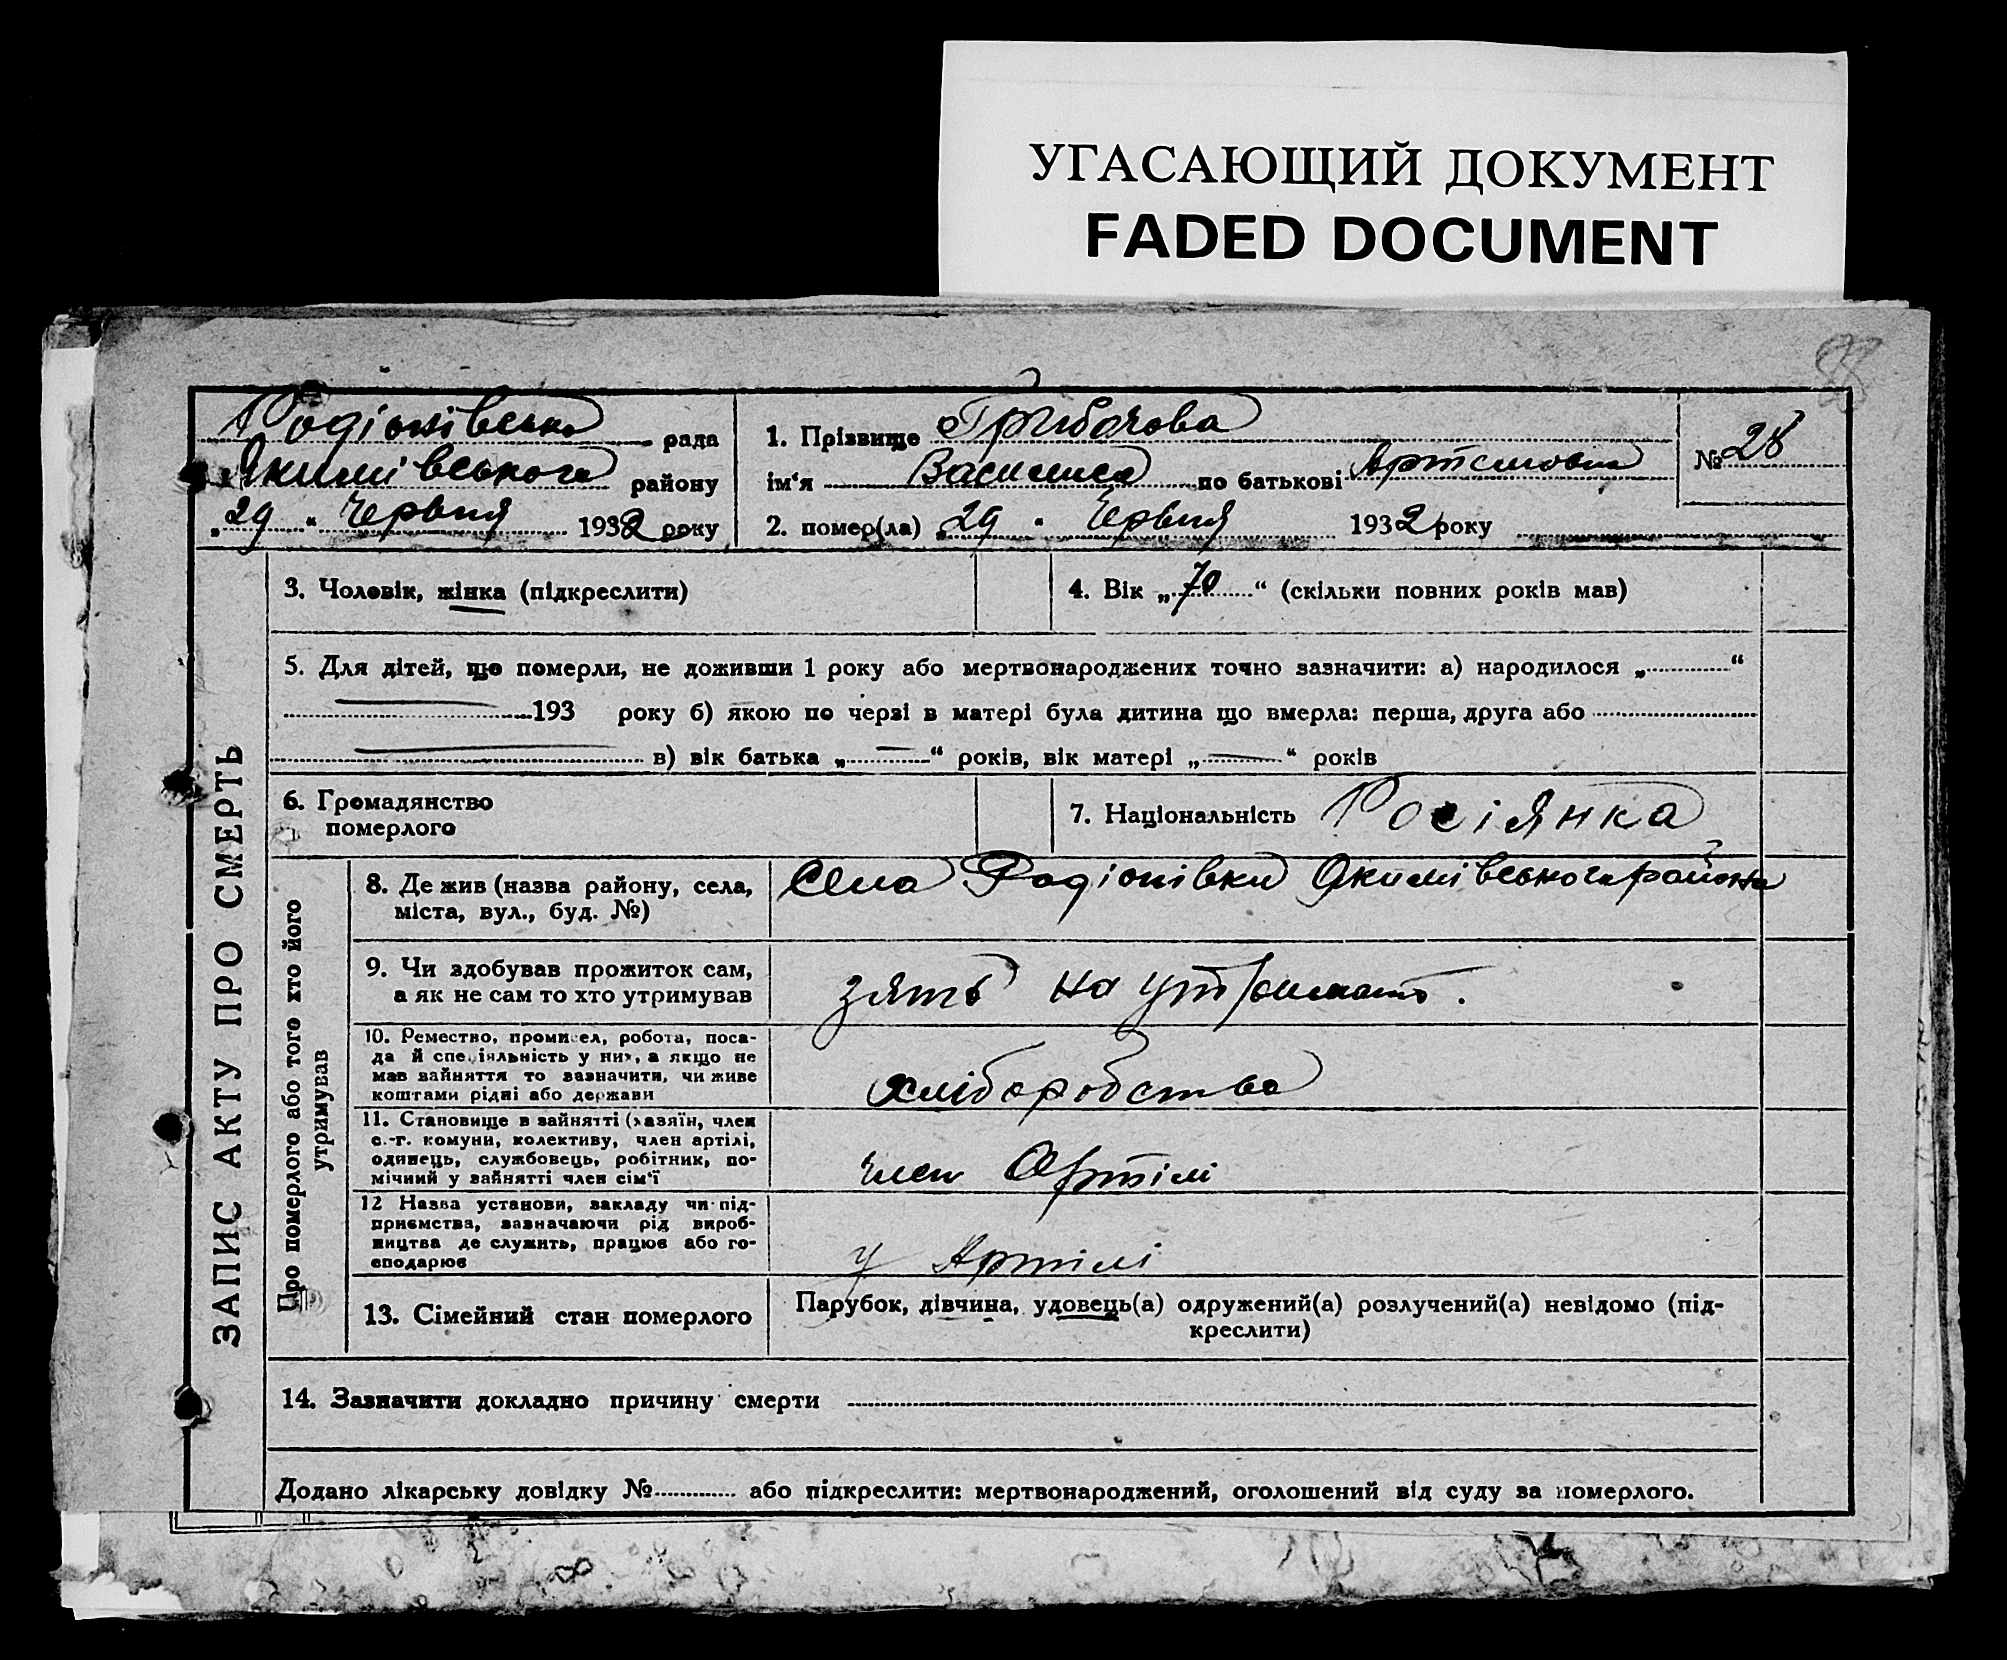 УГАСАЮЩИЙ ДОКУМЕНТ
FADED DOCUMENT
Родіонівська рада
Якимівського району
„29“ Червня 1932 року
1. Прізвище Грибочова
ім‘я Василиса по батькові Артемовна
2. помер(ла) „29“ Червня 1932 року
№ 28
ЗАПИС АКТУ ПРО СМЕРТЬ
3. Чоловік, жінка (підкреслити)
4. Вік „70“ (скільки повних років мав)
5. Для дітей, що померли, не доживши 1 року або мертвонароджених точно зазначити: а) народилося „ “
193 року б) якою по черзі в матері була дитина що вмерла: перша, друга або
в) вік батька „—“ років, вік матері „—“ років
6. Громадянство
померлого
7. Національність Росіянка
Про померлого або того хто його
утримував
8. Де жив (назва району, села,
міста, вул., буд. №)
Села Радіонівки Якимівського району
9. Чи здобував прожиток сам,
а як не сам то хто утримував
зять на
10. Ремество, промисел, робота, поса-
да й спеціяльність у них, а якщо не
мав зайняття то зазначити, чи живе
коштами рідні або держави
хліборобства
11. Становище в зайнятті (хазяїн, член
с.-г. комуни, колективу, член артілі,
одинець, службовець, робітник, по-
мічний у зайнятті член сім‘ї
член Артілі
12 Назва установи, закладу чи під-
приємства, зазначаючи рід вироб-
ництва де служить, працює або го-
сподарює
у Артілі
13. Сімейний стан померлого
Парубок, дівчина, удовець(а) одружений(а) розлучений(а) невідомо (під-
креслити)
14. Зазначити докладно причину смерти
Додано лікарську довідку № або підкреслити: мертвонароджений, оголошений від суду за померлого.